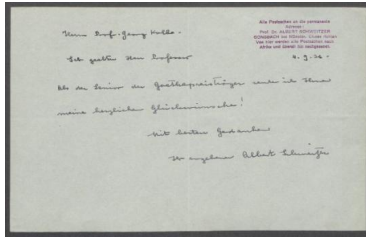 Alle Postsachen an die permanente
Adresse:
Prof. Dr. ALBERT SCHWEITZER
GÜNSBACH bei Münster, Elsass
Von hier werden alle Postsachen nach
Afrika und überall hin nachgesandt.
Herrn Prof. Georg Kolbe.
Sehr geehrter Herr Professor
Als der Senior der Goethepreisträger sende ich Ihnen
meine herzlichen Glückwünsche!
Mit besten Gedanken
Ihr ergebener Albert Schweitzer